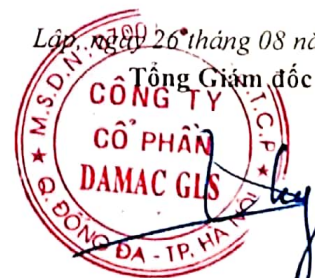 Lập, ngày 26 tháng 08
Tổng Giám đốc
M.S.D.N:
C.T.C.P
CÔNG TY
CỔ PHẦN
DAMAC GLS
Q. ĐỐNG ĐA - TP. HÀ NỘI